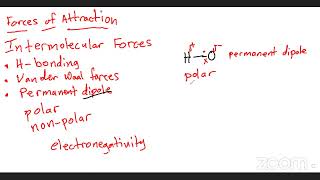 Forces of Attraction
Intermolecular Forces
• H-bonding
• Van der Waal forces
• Permanent dipole
polar
non-polar
electronegativity
δ+ δ-
H — O
permanent dipole
polar
zoom